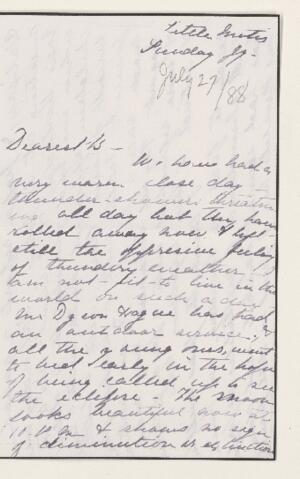 Little Metis
Sunday
July 27/88
Dearest B -
We have had a
very warm close day -
thunder-showers threaten
ing all day but they have
rolled away now & left
still the oppressive feeling
of thundery weather - I
am not - fit - to live in the
world on such a day
Mr Dyson Hague has had
an outdoor service, &
all the young ones, went
to bed early in the hope
of being called up to see
the eclipse - The moon
looks beautiful now at
10 P.M. & shows no sign
of diminution or extinction